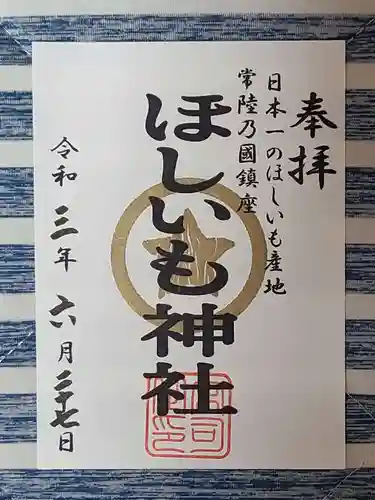 奉拝
日本一のほしいも産地
常陸乃國鎮座
ほしいも神社
令和三年六月二十七日